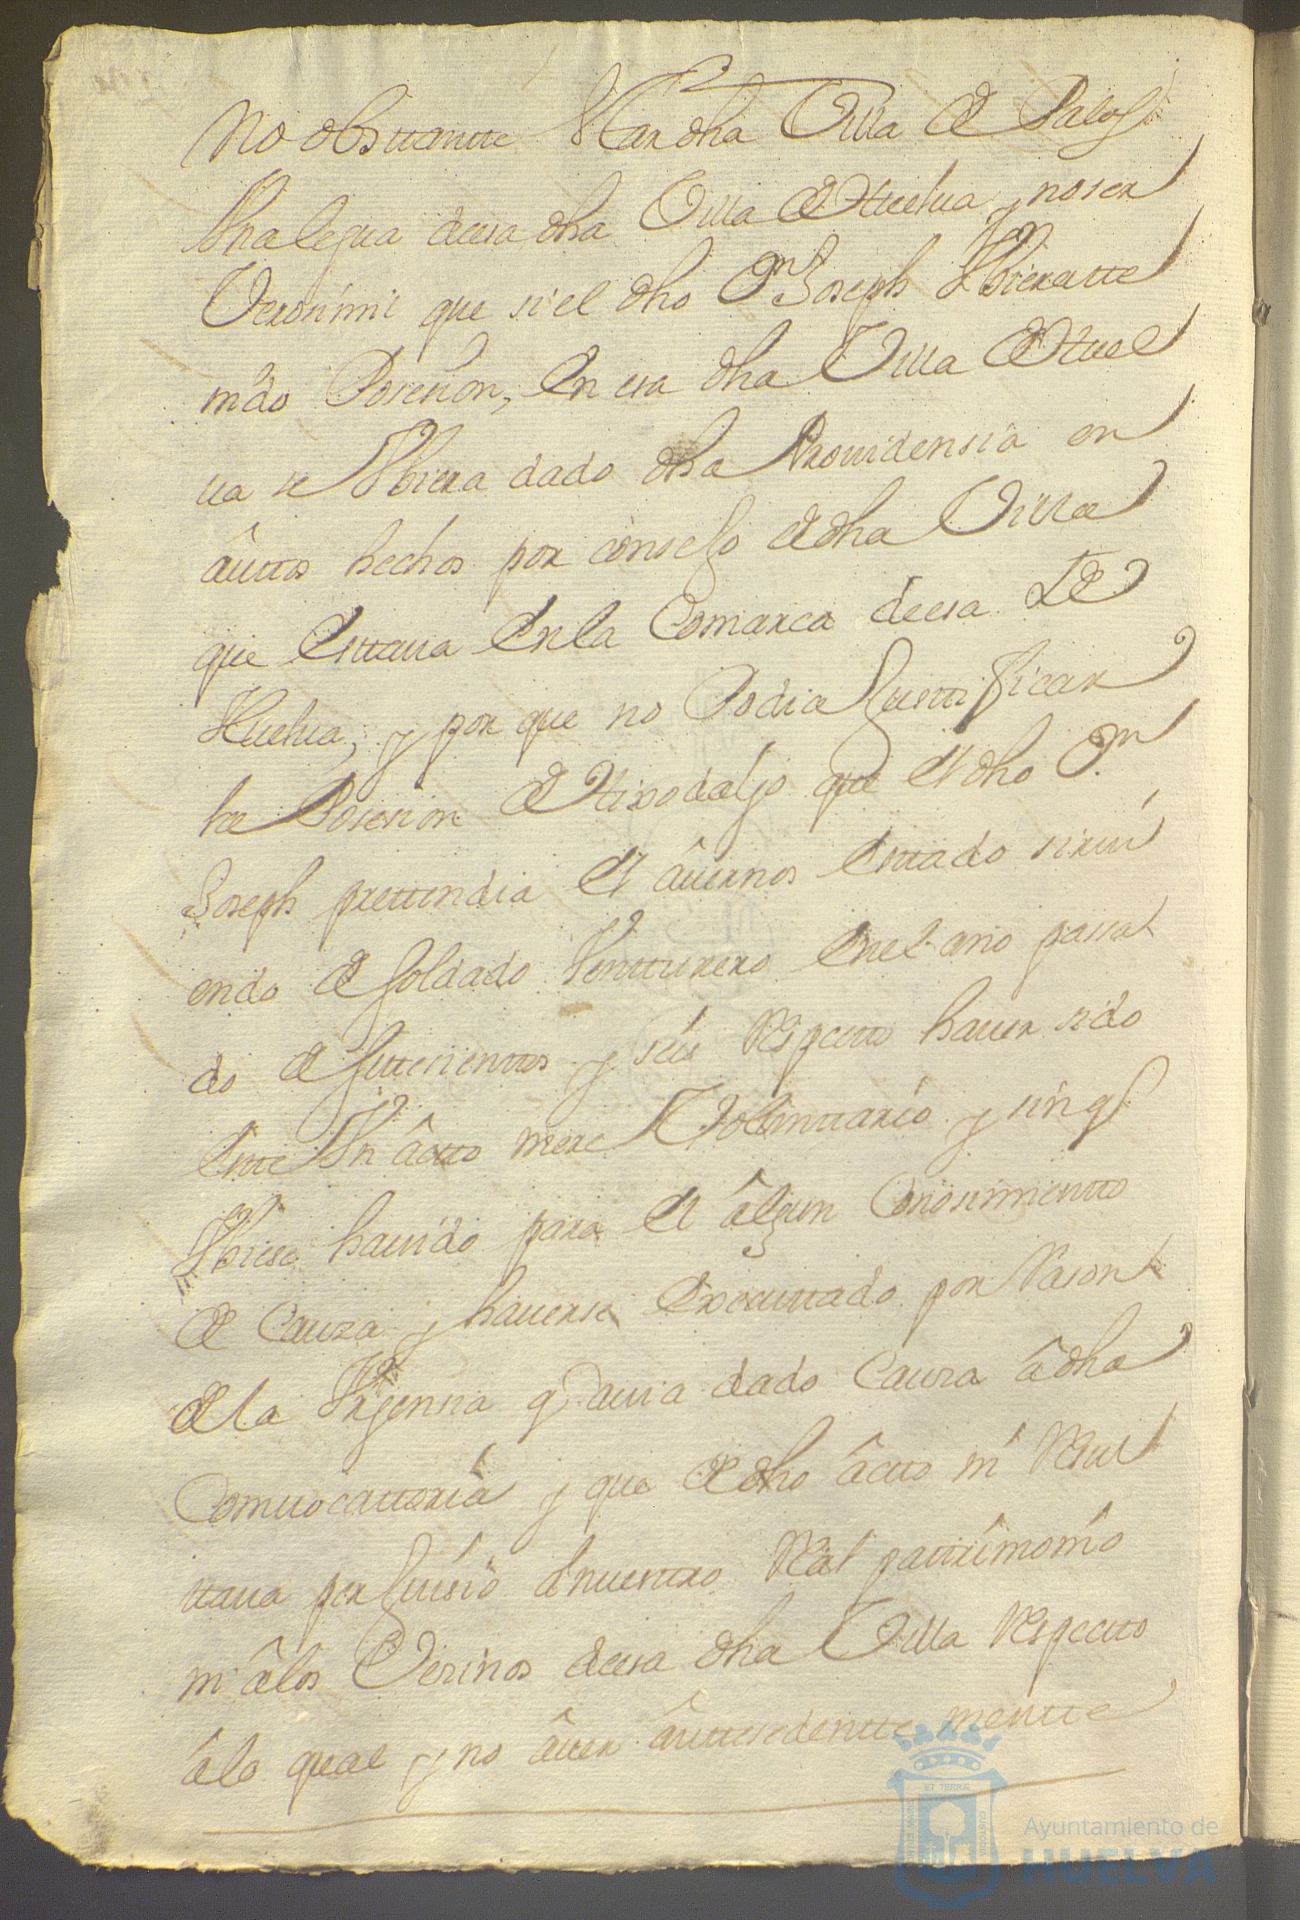 no obsttantte star dha Villa de Palos
Una legua desa dha Villa de Huelua, y no ser
Verosimil que si el dho Dn Joseph Ubieratte
nido Posesion, en esa dha Villa de Huel
ua se Ubiera dado dha Prouidensia en
âuttos hechos por consejo de dha Villa
que esttaua en la Comarca de esa de
Huelua, y por que no Podia Justtificar
le Posesion de Hixodalgo que el dho Dn
Joseph prettendia el âuernos esttado sirui
endo de Soldado Ventturero en el año passa
do de settesienttos y seis Respectto hauer sido
estte Un âctto mere Volunttario y sin q
Ubiese hauido para el âlgun Conosimientto
de Causa y hauerse executtado por Rason
de la Urgensia q auia dado Causa â dha
Comuocattoria y que de dho âctto ni Resul
ttaua perjuisio a nuesttro Real pattrimonio
ni âlos Vesinos desa dha Villa Respectto
âlo qual y no âuer ânttesedenttementte
Ayuntamiento de
HUELVA